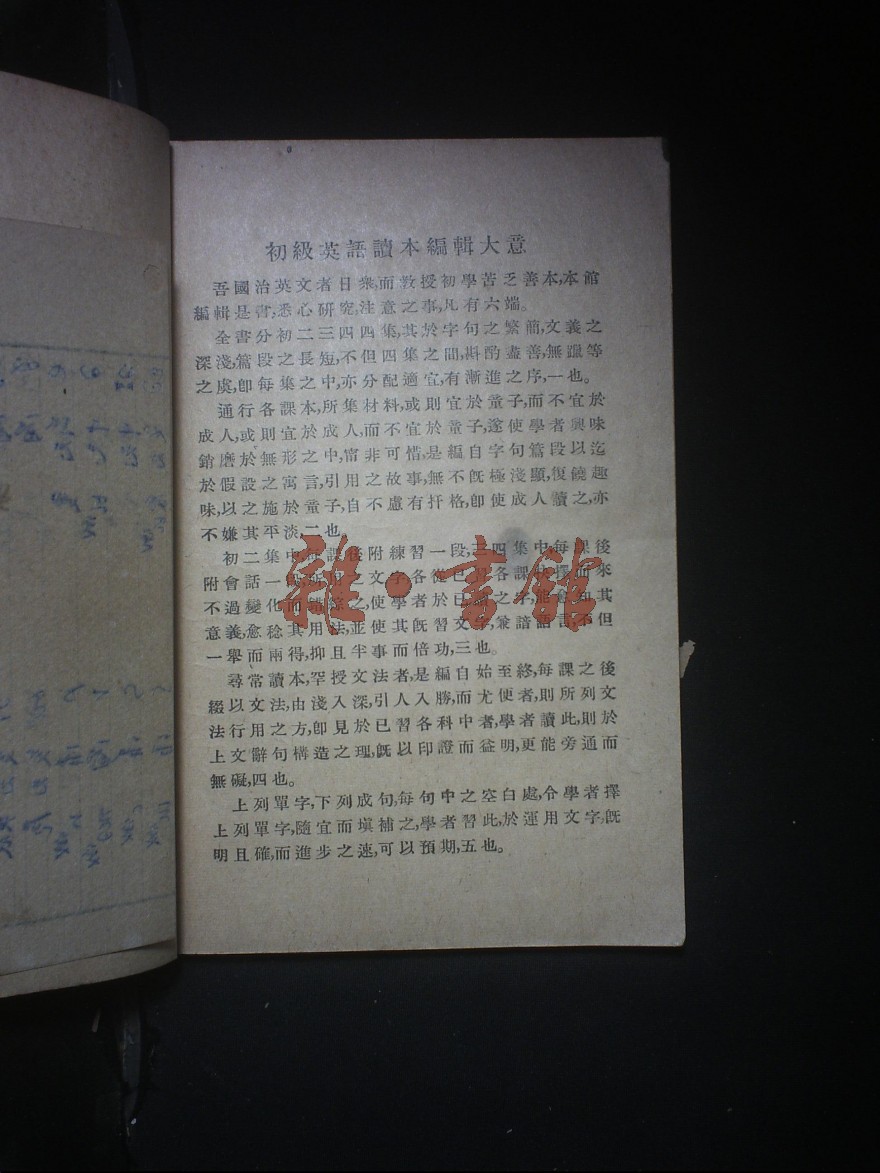 初級英語讀本編輯大意
吾國治英文者日衆,而教授初學苦乏善本,本館
編輯是書,悉心研究,注意之事,凡有六端。
全書分初二三四四集,其於字句之繁簡,文義之
深淺,篇段之長短,不但四集之間,斟酌盡善,無躐等
之虞,卽每集之中,亦分配適宜,有漸進之序,一也。
通行各課本,所集材料,或則宜於童子,而不宜於
成人,或則宜於成人,而不宜於童子,遂使學者興味
銷磨於無形之中,甯非可惜,是編自字句篇段以迄
於假設之寓言,引用之故事,無不旣極淺顯,復饒趣
味,以之施於童子,自不慮有扞格,卽使成人讀之,亦
不嫌其平淡,二也
初二集中,每課後附練習一段,三四集中,每課後
附會話一段,所用之文字各從已習各課中擇而來
不過變化而錯綜之,使學者於已讀之字,能會知其
意義,愈稔其用法,並使其旣習文字,兼諳語言,不但
一舉而兩得,抑且半事而倍功,三也。
尋常讀本,罕授文法者,是編自始至終,每課之後
綴以文法,由淺入深,引人入勝,而尤便者,則所列文
法行用之方,卽見於已習各科中者,學者讀此,則於
上文辭句構造之理,旣以印證而益明,更能旁通而
無礙,四也。
上列單字,下列成句,每句中之空白處,令學者擇
上列單字,隨宜而塡補之,學者習此,於運用文字,旣
明且確,而進步之速,可以預期,五也。
雜·書館